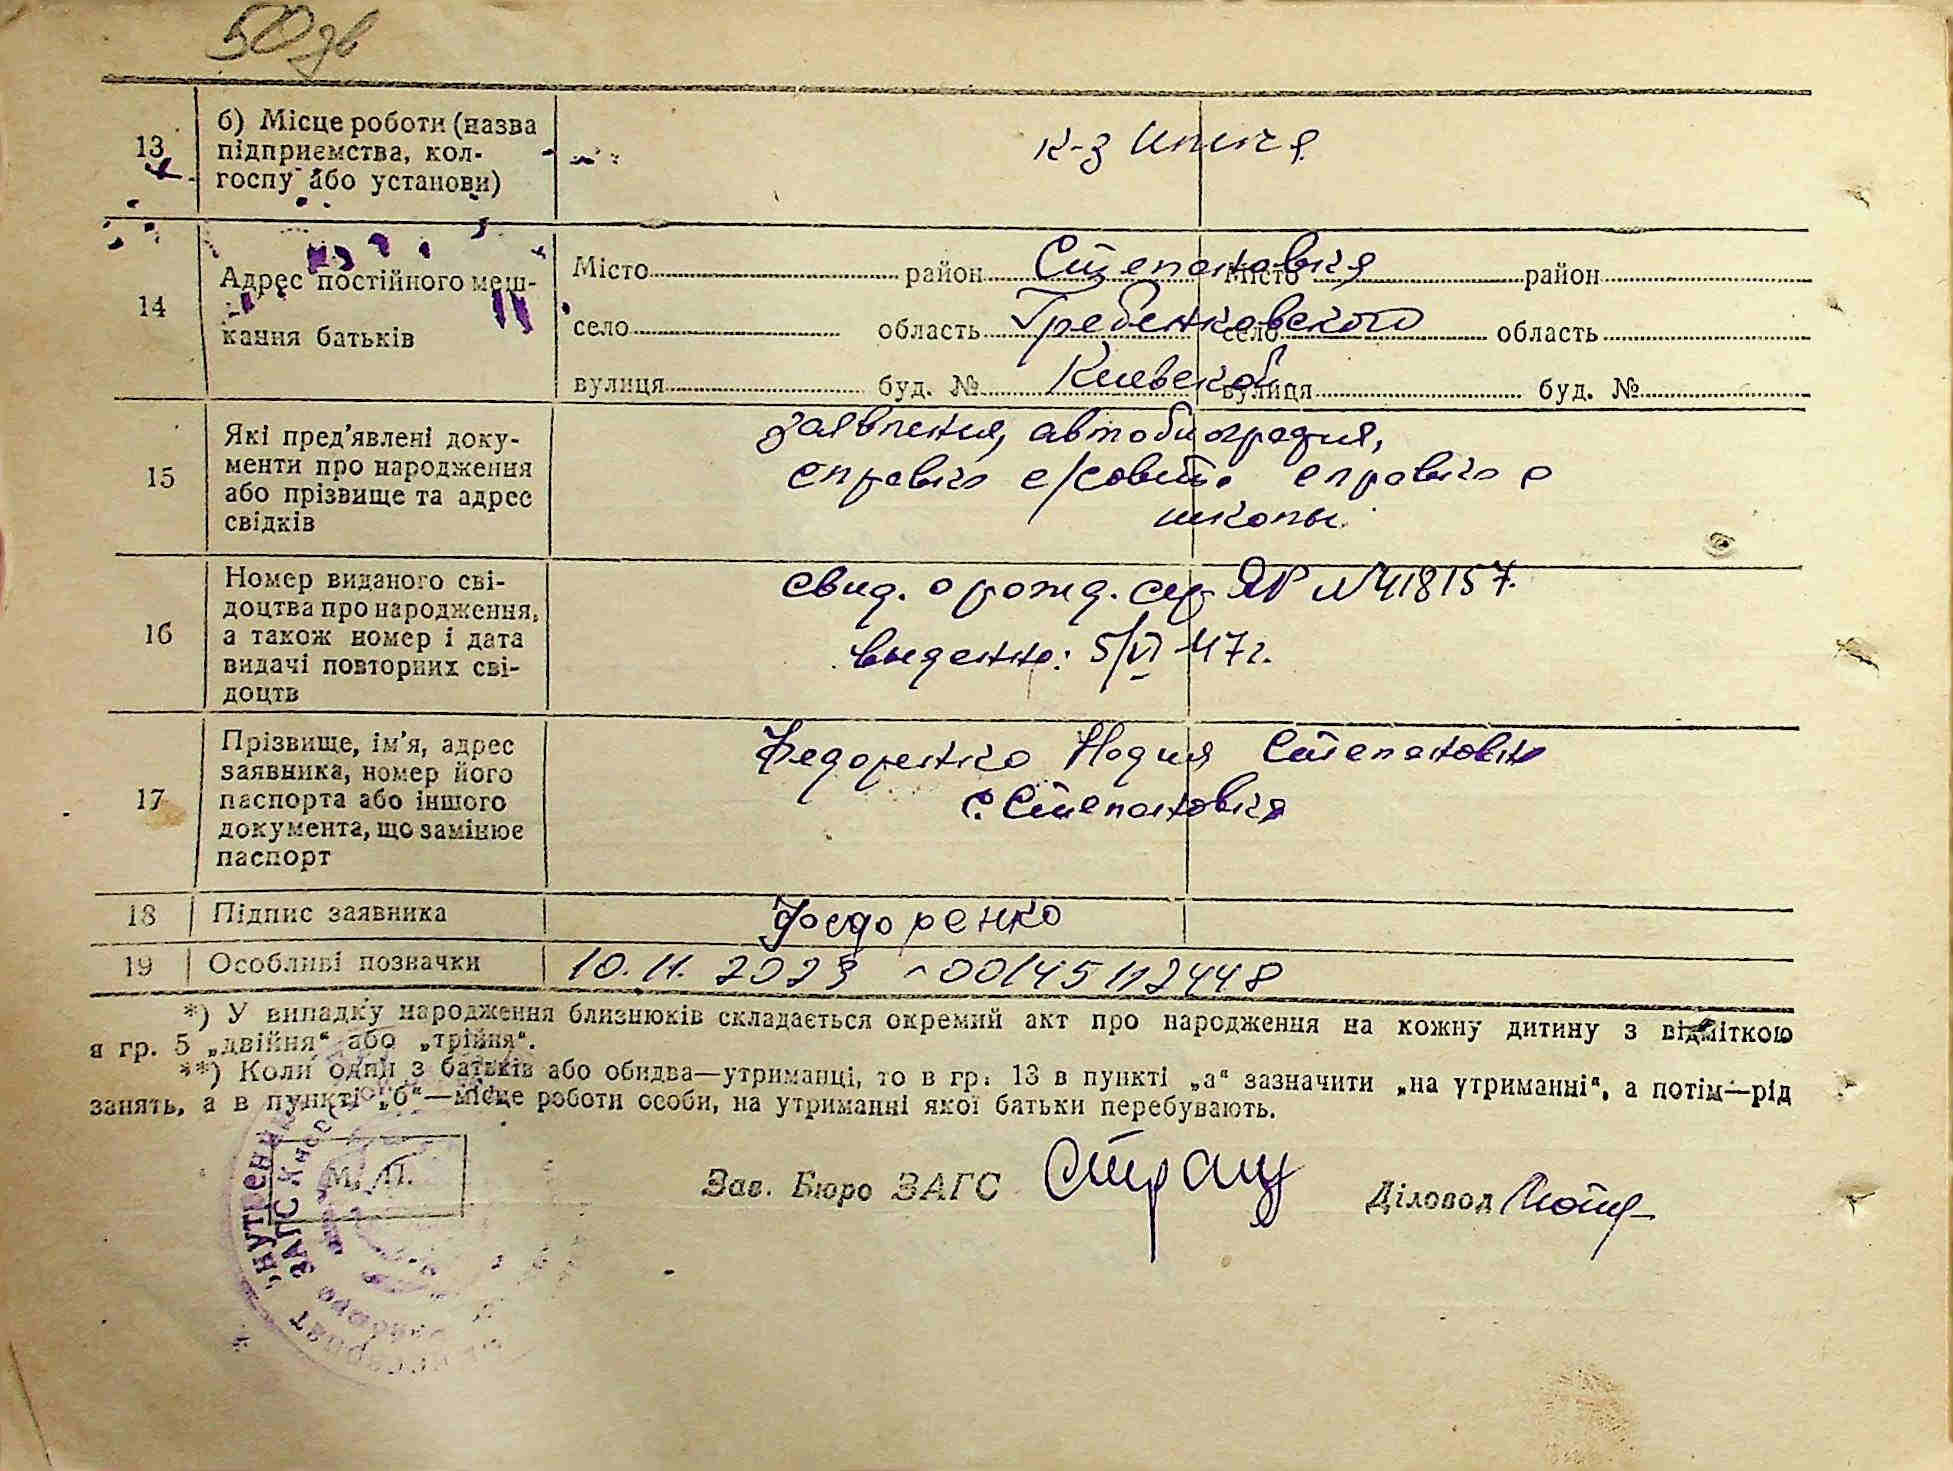 50 зв
13 б) Місце роботи (назва
підприємства, кол-
госпу або установи)
к-з Ильича
14 Адрес постійного меш-
кання батьків
Місто район Степановка Місто район
село область Гребенковского село область
вулиця буд. № Киевской вулиця буд. №
15 Які пред'явлені доку-
менти про народження
або прізвище та адрес
свідків
заявления, автобиография,
справка с/совет. справка с
школы.
16 Номер виданого сві-
доцтва про народження,
а також номер і дата
видачі повторних сві-
доцтв
свид. о рожд. сер ЯР №418157.
выданно: 5/VI 47 г.
17 Прізвище, ім'я, адрес
заявника, номер його
паспорта або іншого
документа, що замінює
паспорт
Федоренко Надия Степановна
с. Степановка
18 Підпис заявника Федоренко
19 Особливі позначки 10.11.2023 00145112448
*) У випадку народження близнюків складається окремий акт про народження на кожну дитину з відміткою
я гр. 5 „двійня“ або „трійня“.
**) Коли один з батьків або обидва—утриманці, то в гр. 13 в пункті „а“ зазначити „на утриманні“, а потім—рід
занять, а в пункті „б“—місце роботи особи, на утриманні якої батьки перебувають.
М. П.
Зав. Бюро ЗАГС Діловод
ВНУТРЕН
ЗАГС Киев